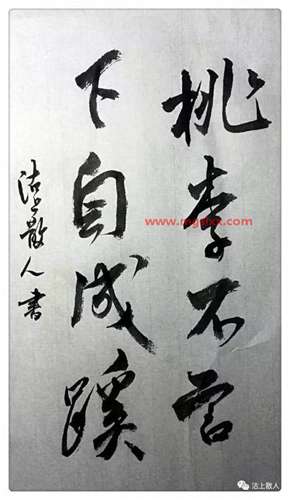 桃李不言
下自成蹊
沽上散人书
www.mgphx.com
沽上散人